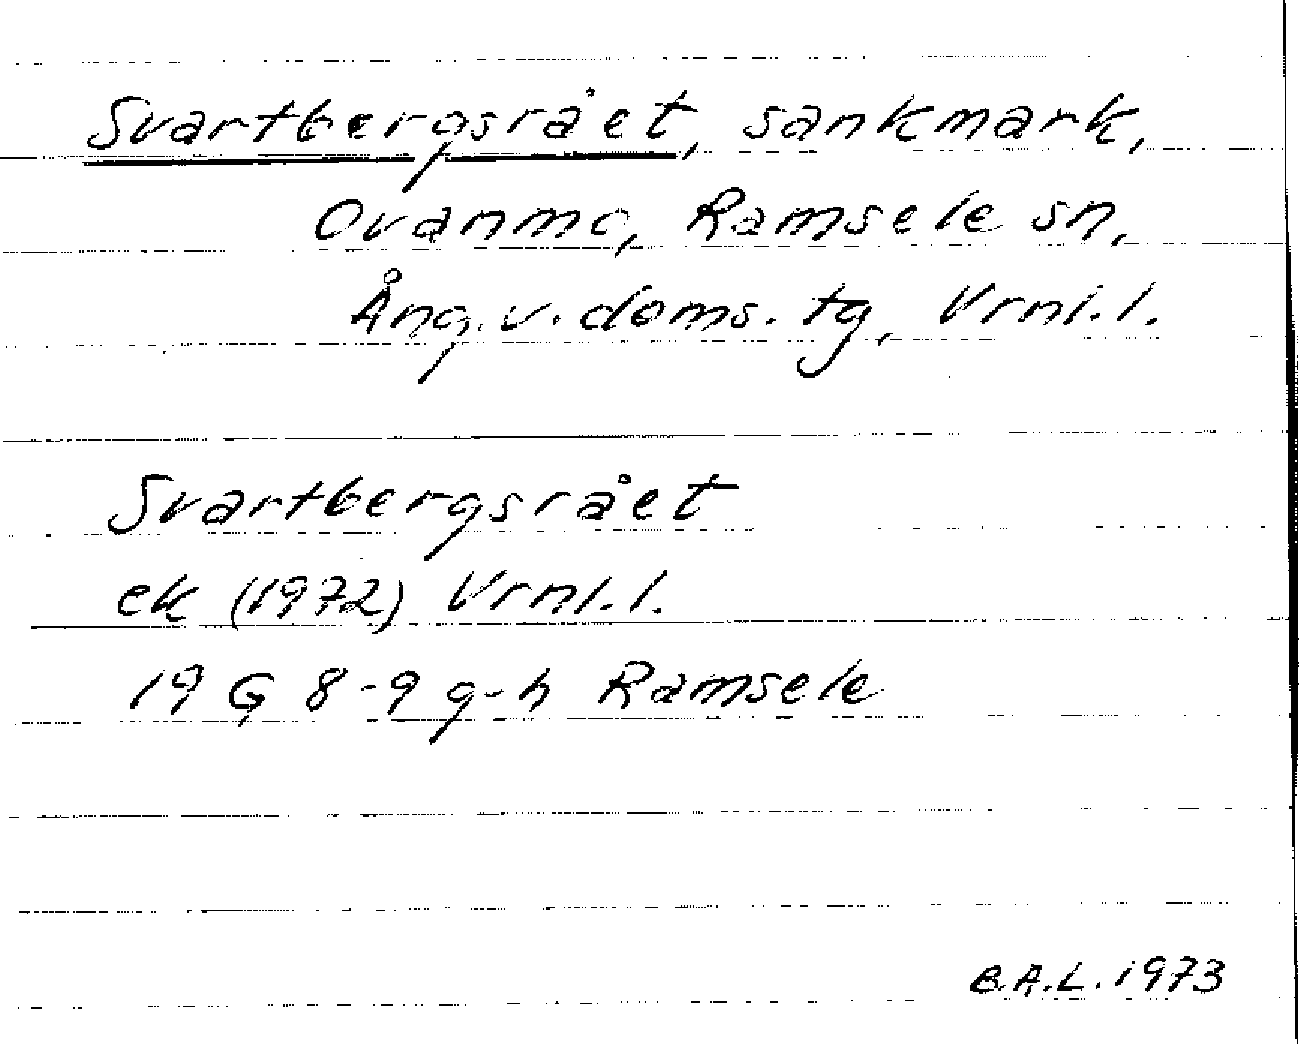 Svartbergsrået, sankmark,
Ovanmo, Ramsele sn,
Ång. v. doms. tg, Vrnl. l.
Svartbergsrået
ek (1972) Vrnl. l.
19 G 8-9 g-h Ramsele
B.A.L. 1973